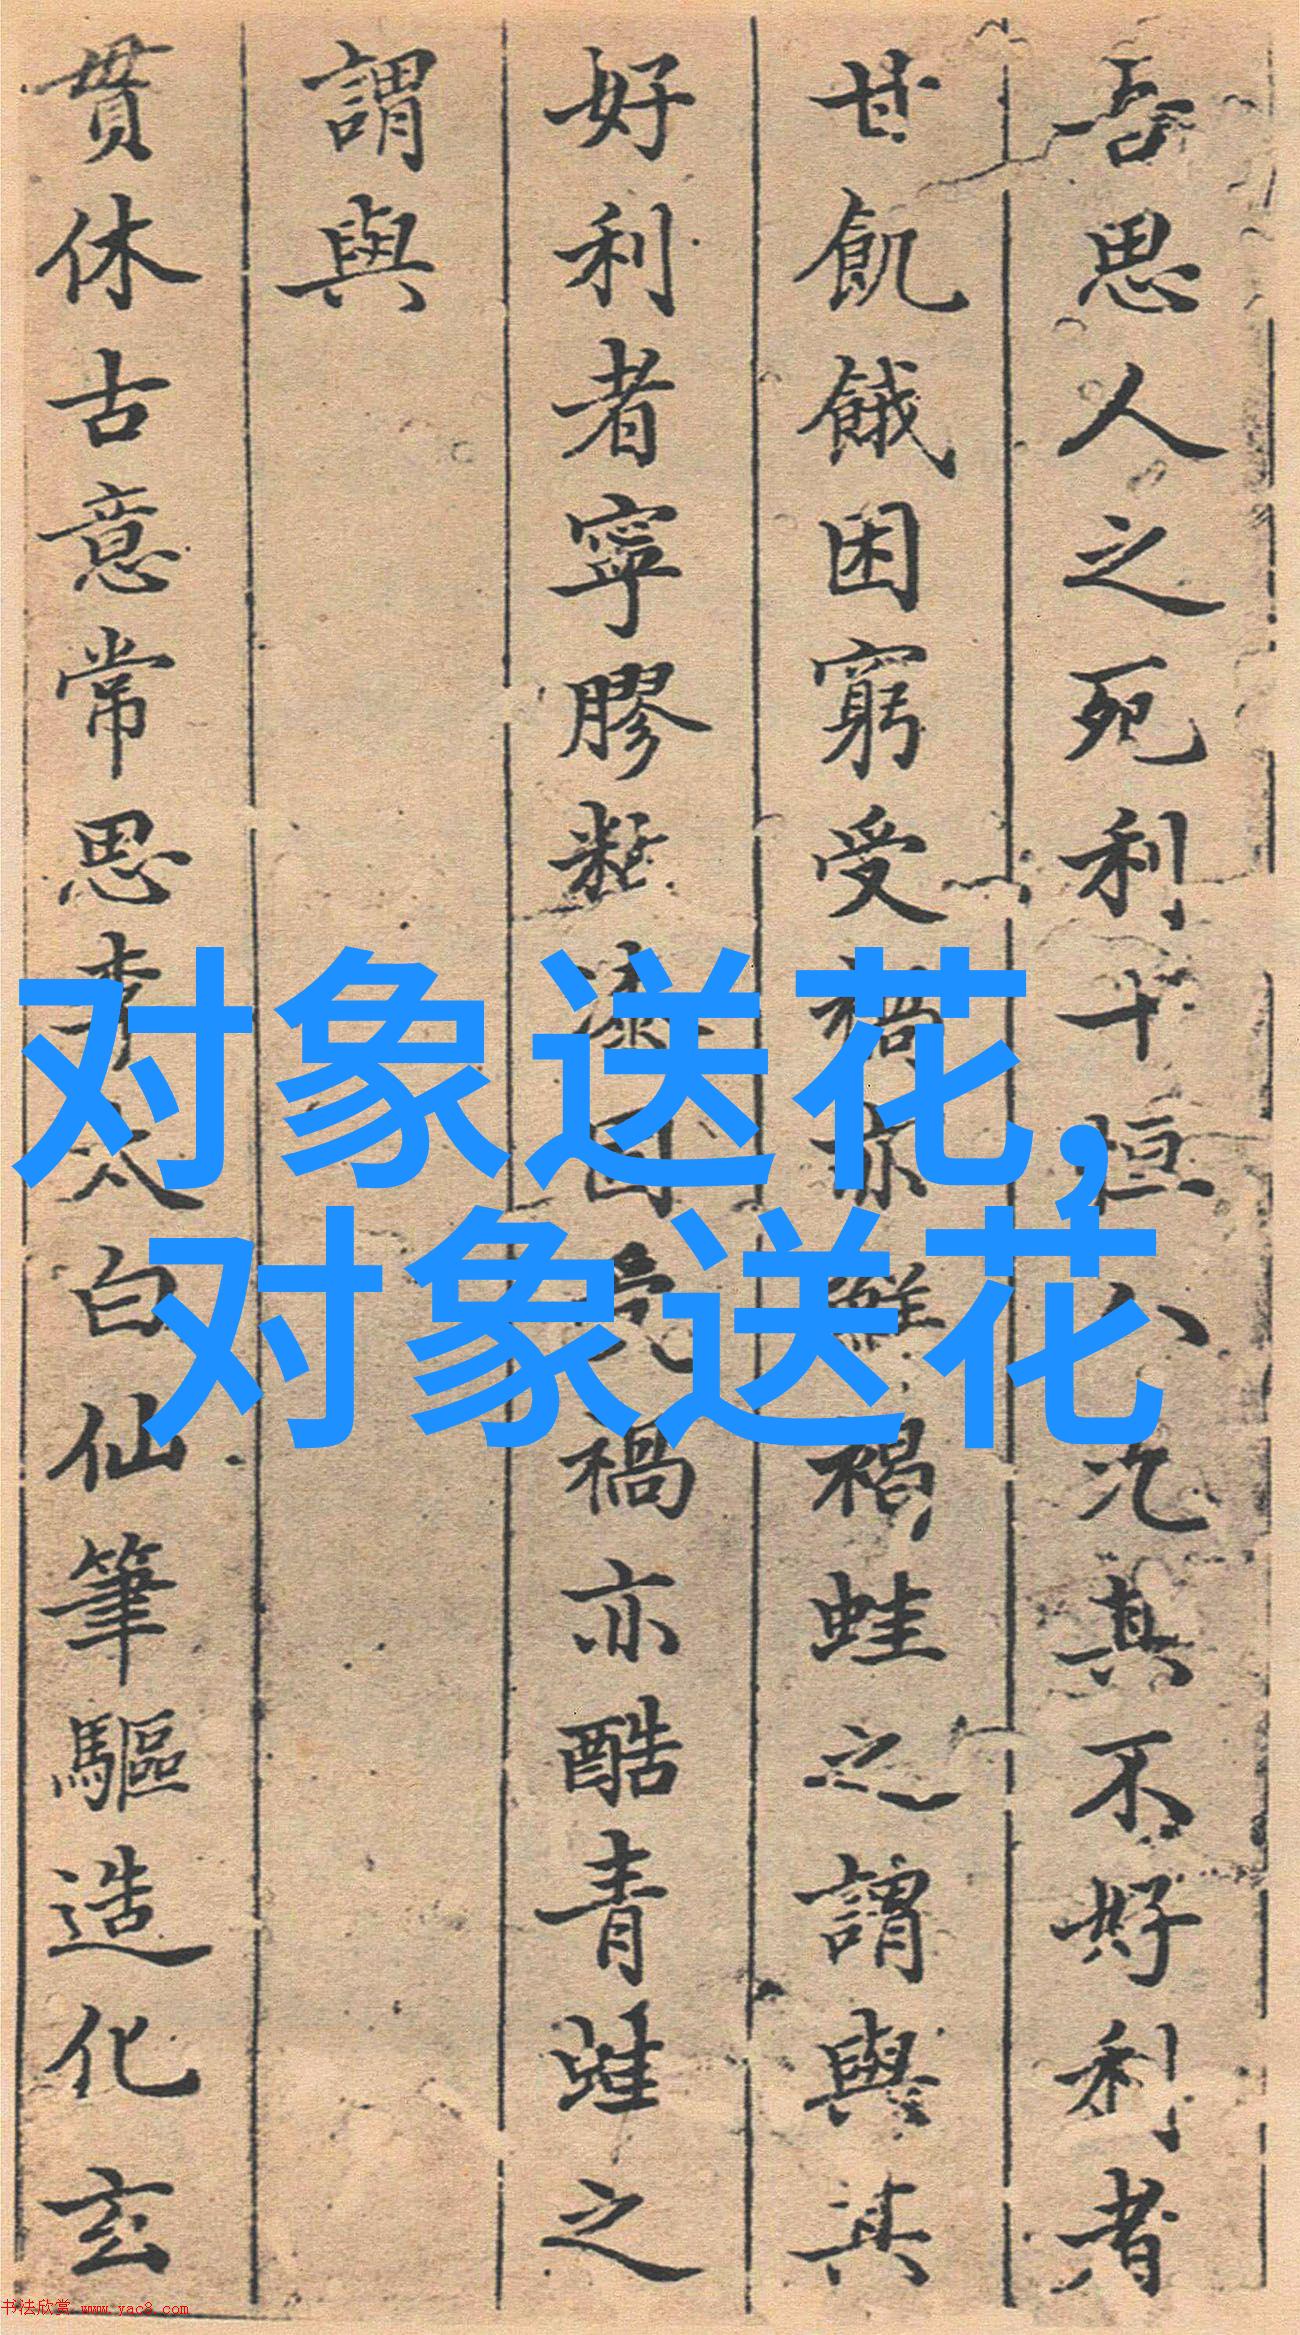 吾思人之死利十恒八九其不好利者
甘飢餓困窮受禍亦維禍蛙之謂與其
好利者寧膠黏漆固受禍亦酷青蛙之
謂與
貫休古意常思李太白仙筆驅造化玄
对象送花,
对象送花
书法欣赏 www.yac8.com